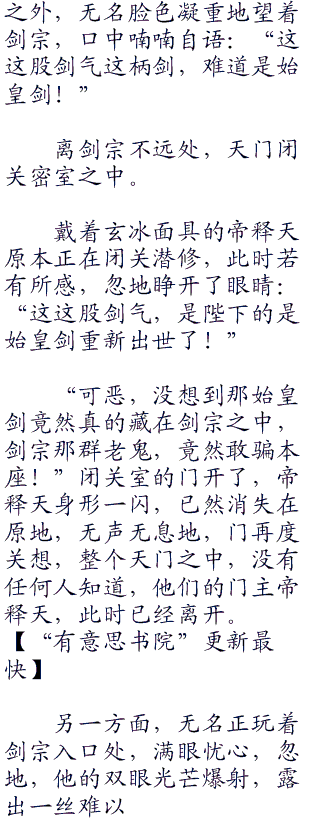 之外，无名脸色凝重地望着
剑宗，口中喃喃自语：“这
这股剑气这柄剑，难道是始
皇剑！”
离剑宗不远处，天门闭
关密室之中。
戴着玄冰面具的帝释天
原本正在闭关潜修，此时若
有所感，忽地睁开了眼睛：
“这这股剑气，是陛下的是
始皇剑重新出世了！”
“可恶，没想到那始皇
剑竟然真的藏在剑宗之中，
剑宗那群老鬼，竟然敢骗本
座！”闭关室的门开了，帝
释天身形一闪，已然消失在
原地，无声无息地，门再度
关想，整个天门之中，没有
任何人知道，他们的门主帝
释天，此时已经离开。
【“有意思书院”更新最
快】
另一方面，无名正玩着
剑宗入口处，满眼忧心，忽
地，他的双眼光芒爆射，露
出一丝难以